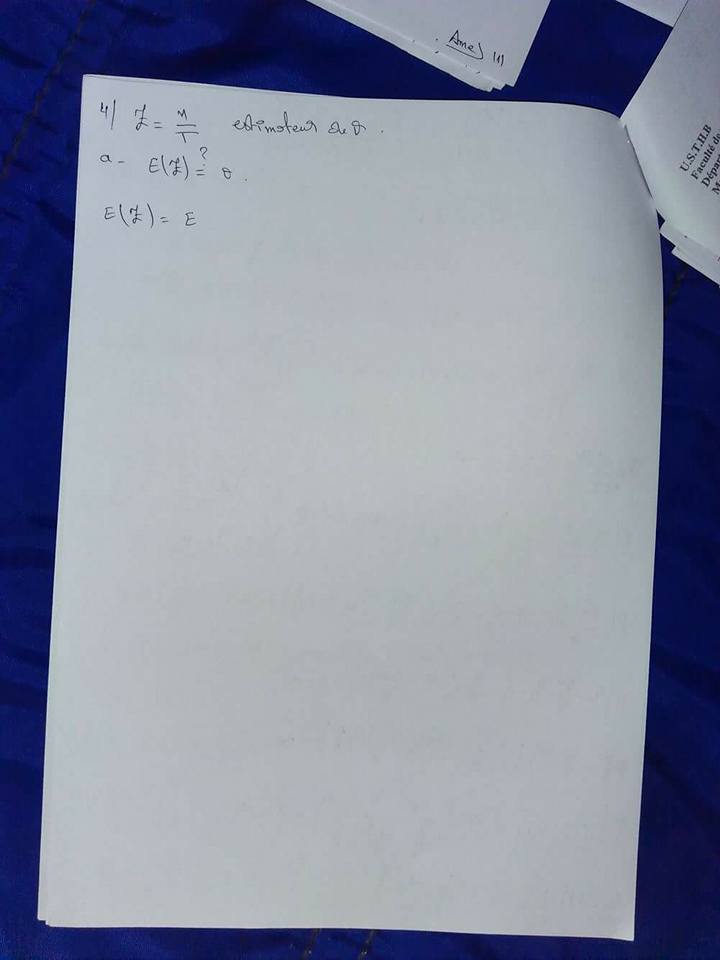 Ame) (1)
U.S.T.H.B
Faculté de
Dépar
M
4) Z = n/T estimateur de θ.
a- E(Z) ?= θ.
E(Z) = E